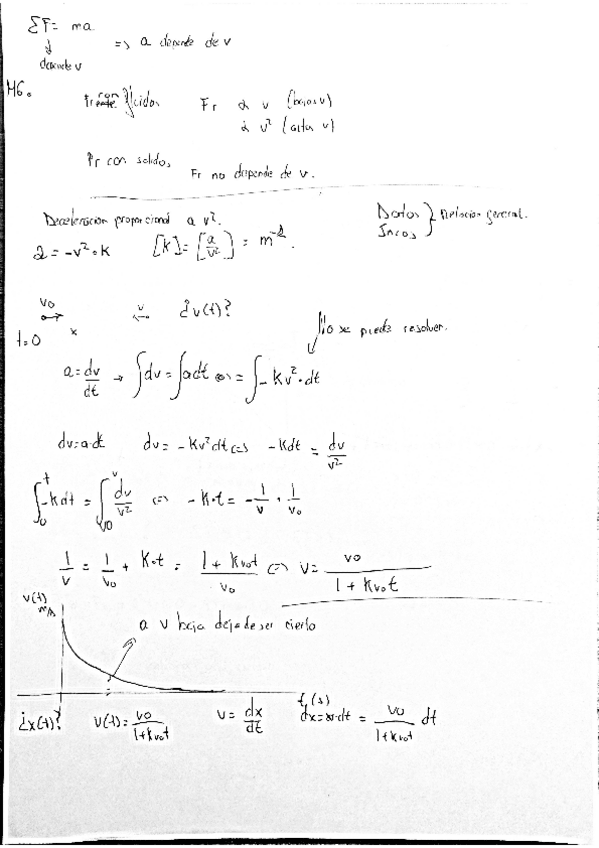 ΣF = ma
↓ => a depende de v
depende v
M6.
Fr con fluidos Fr α v (bajas v)
α v² (altas v)
Fr con solidos, Fr no depende de v.
Deceleracion proporcional a v². Datos } Relacion general.
a = -v²·k [k] = [a/v²] = m⁻¹. Incos
v0 v ¿v(t)?
t=0 x No se puede resolver.
a = dv/dt → ∫dv = ∫adt = ∫-kv²·dt
dv=a·dt dv = -kv²dt <=> -kdt = dv/v²
∫₀ᵗ -kdt = ∫ᵥ₀ᵛ dv/v² <=> -k·t = -1/v · 1/v0
1/v = 1/v0 + k·t = 1 + kv0t / v0 <=> v = v0 / 1 + kv0t
v(t) m/s
a v baja deja de ser cierto
t (s)
¿x(t)? v(t) = v0/1+kv0t v = dx/dt dx=v·dt = v0/1+kv0t dt